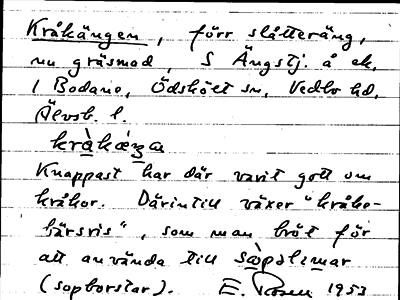 Kråkängen, förr slåtteräng,
nu gräsmad, S Ängstj. å ek.
/ Bodane, Ödskölt sn, Vedbo hd,
Älvsb. l.
Knappast har där varit gott om
kråkor. Därintill växer "kråke-
bärsris", som man bröt för
att använda till såpslimar
(sopborstar). E. Rosen 1953